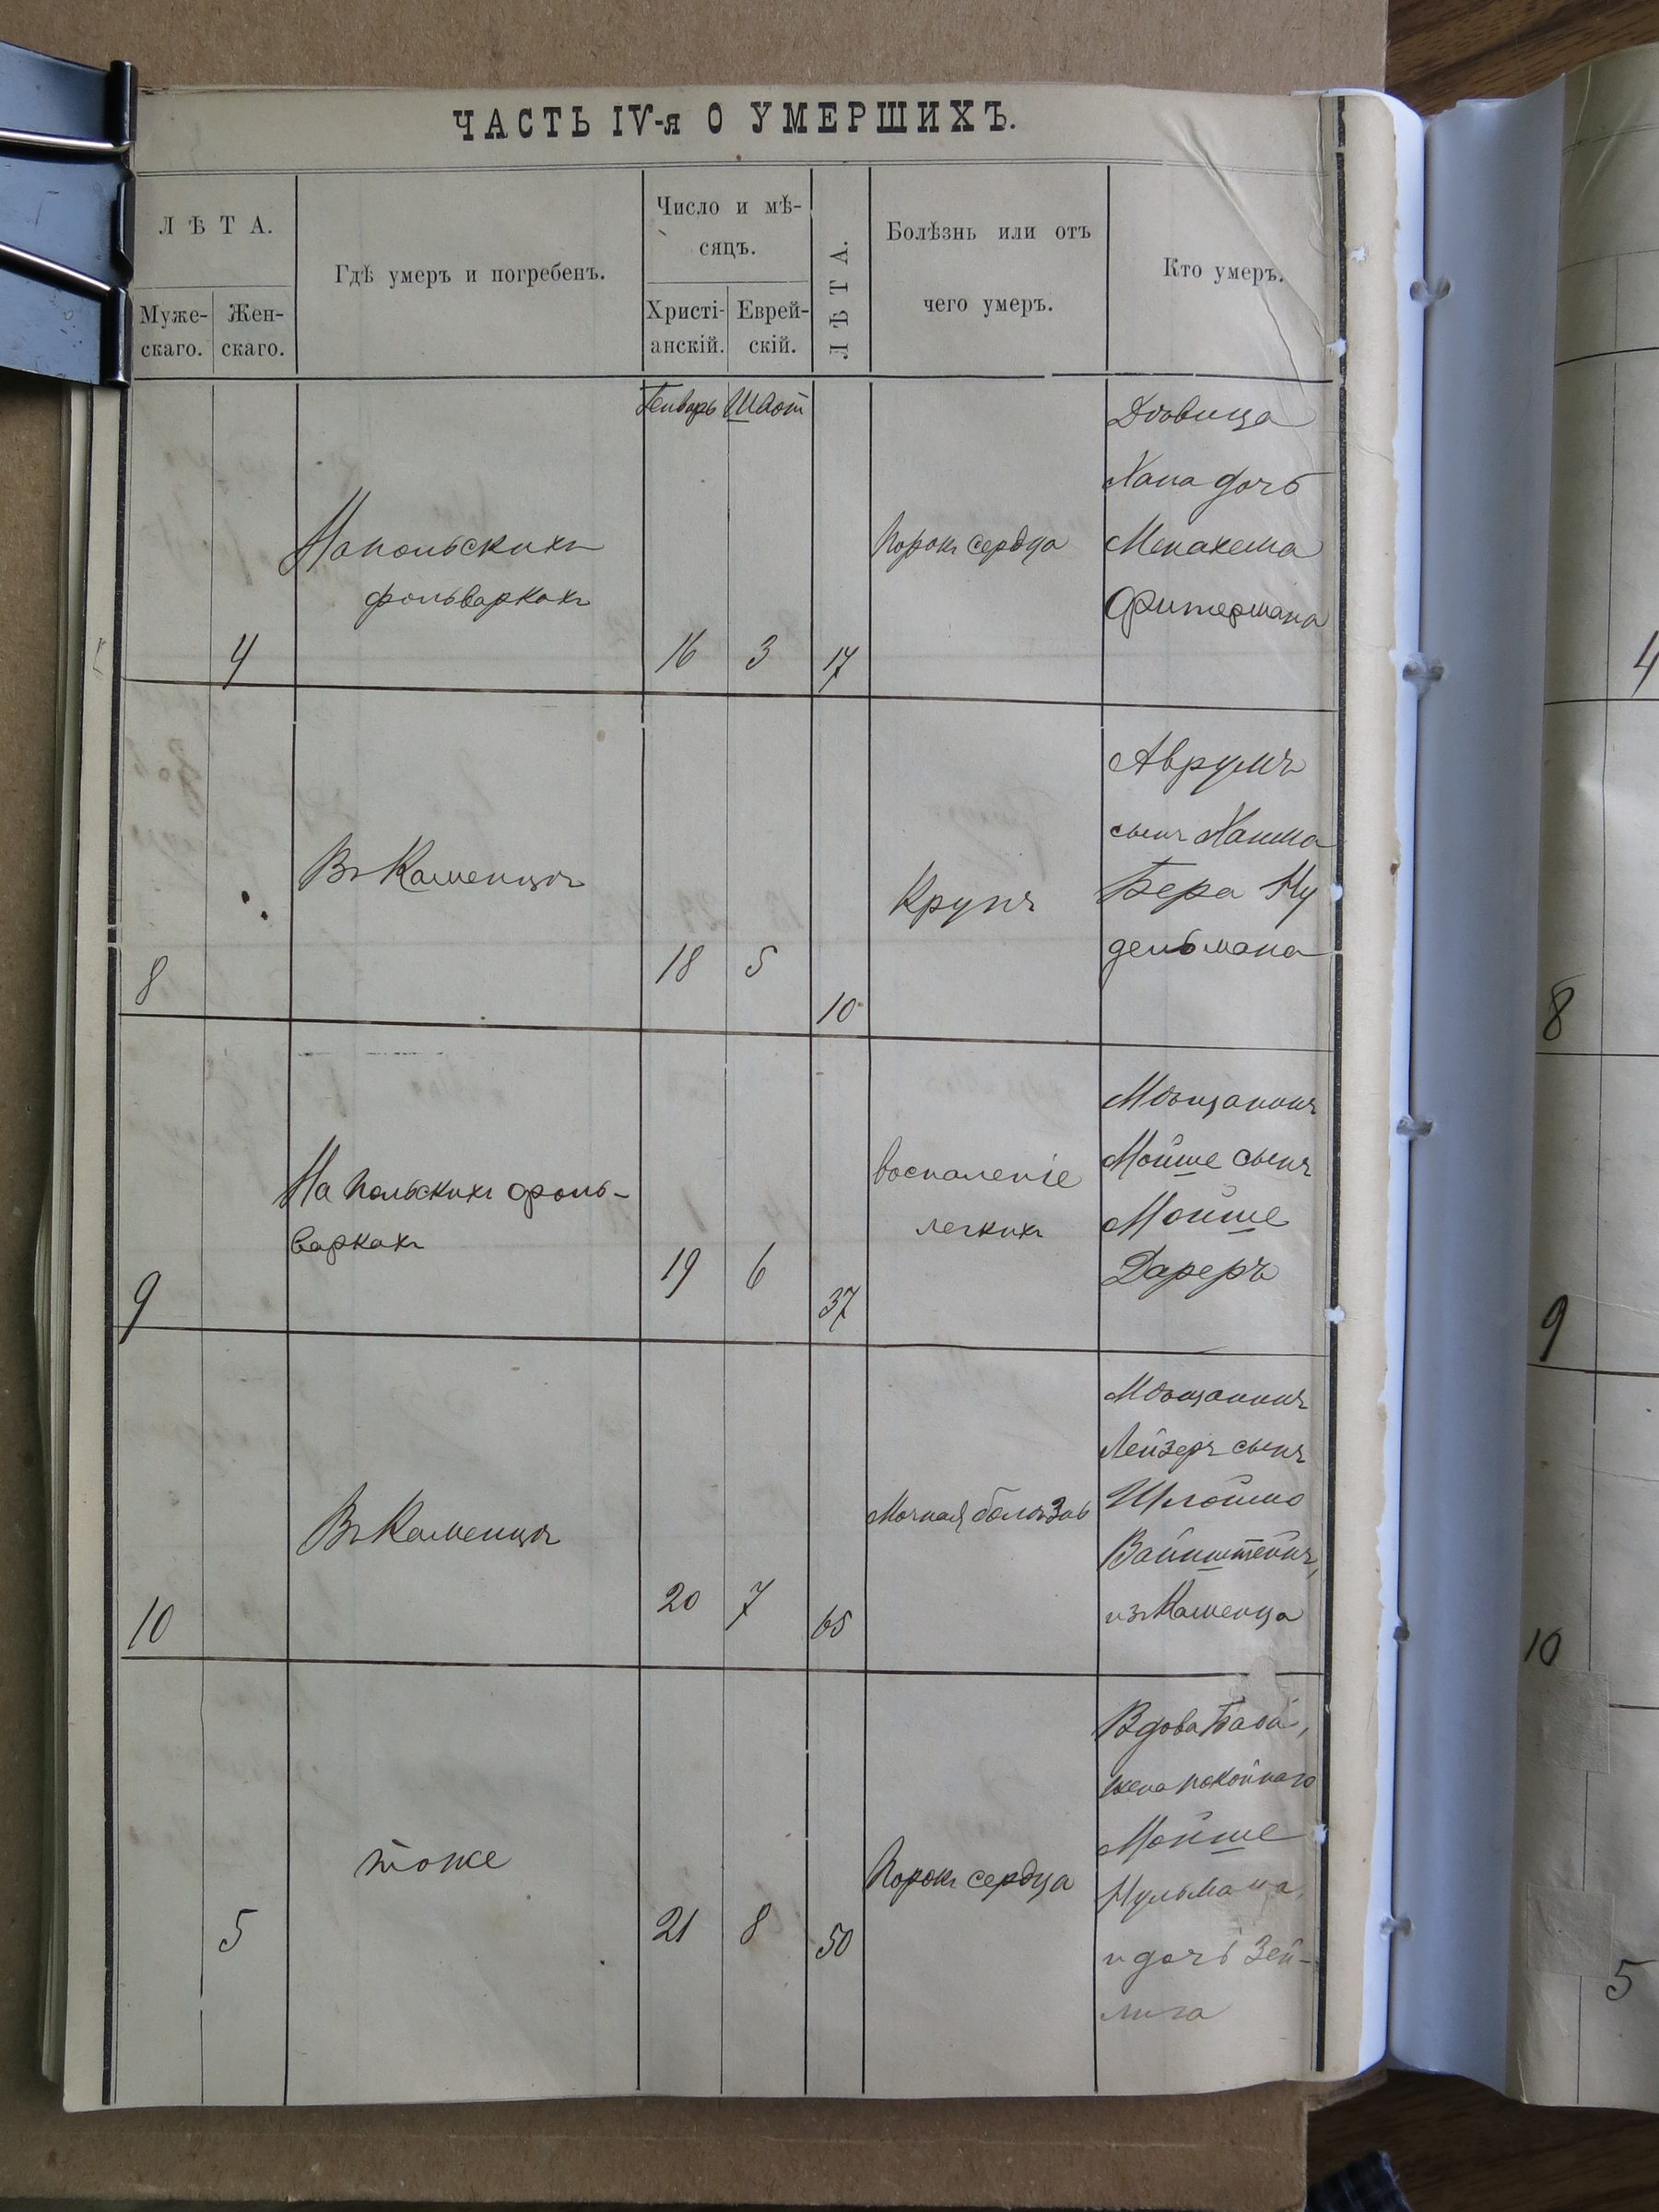 ЧАСТЬ IV-я О УМЕРШИХЪ.
ЛѢТА.
Муже-
скаго.
Жен-
скаго.
Гдѣ умеръ и погребенъ.
Число и мѣ-
сяцъ.
Христі-
анскій.
Еврей-
скій.
ЛѢТА.
Болѣзнь или отъ
чего умеръ.
Кто умеръ.
Генварь Шват
4
На польскихъ
фольваркахъ
16
3
17
Порокъ сердца
Дѣвица
Хана дочь
Менахема
Фитермана
8
Въ Каменцѣ
18
5
10
Крупъ
Аврумъ
сынъ Хаима
Бера Ну
дельмана
9
На польскихъ фоль-
варкахъ
19
6
37
воспаленіе
легкихъ
Мѣщанинъ
Мойше сынъ
Мойше
Дареръ
10
Въ Каменцѣ
20
7
65
Мочная болѣзнь
Мѣщанинъ
Лейзеръ сынъ
Шлоймо
Вайнштейнъ,
изъ Каменца
5
тоже
21
8
50
Порокъ сердца
Вдова
жена покойнаго
Мойше
Нульмана,
и дочь Зей-
лига
4
8
9
10
5